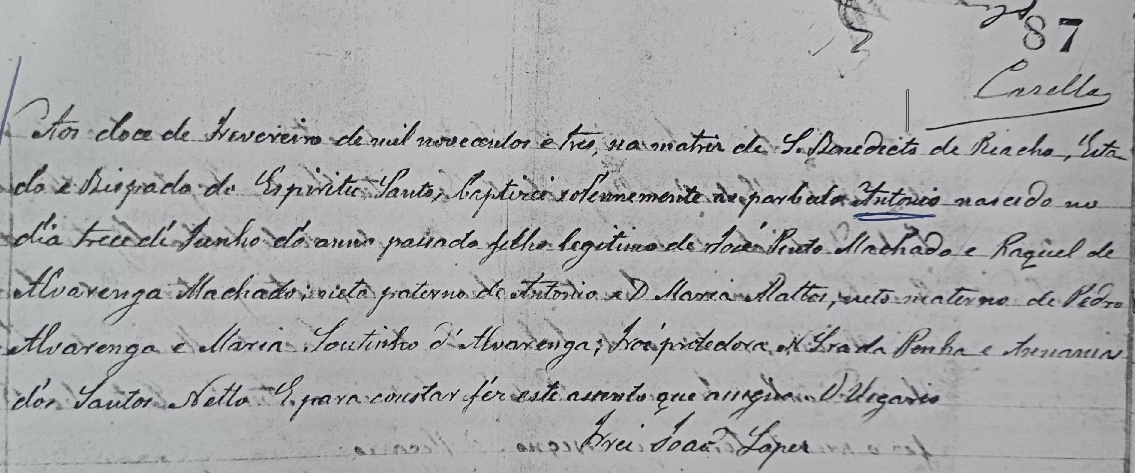 87
Casella
Aos doce de Fevereiro de mil novecentos e tres, na matriz de S. Benedicto de Riacho, Esta-
do e Bispado do Espirito Santo, baptizei solennemente no parbulo Antonio nascido no
dia trece de Junho do anno passado filho legitimo de José Pinto Machado e Raquel de
Alvarenga Machado; neto paterno de Antonio e D Maria Mattos, neto materno de Pedro
Alvarenga e Maria Coutinho d'Alvarenga; Foi protectora N Sra da Penha e
dos Santos Netto. E para constar féz este assento que assigno. O Vigario
Frei João Lopes